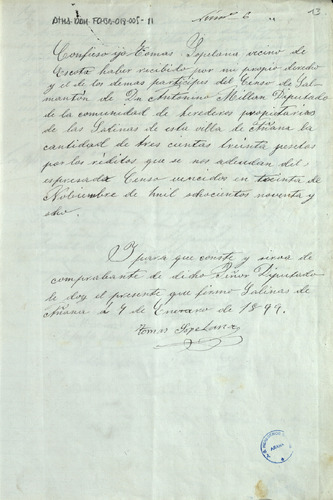 ATHA-DAH-FCAS-018-005-11
Num 6
13
Confieso yo Tomas Ypelana vecino de
Escota haber recibido por mi propio derecho
y el de los demas participes del Censo de Sal
mantón de Dn Antonino Millan Diputado
de la comunidad de herederos propietarios
de las Salinas de esta villa de Añana la
cantidad de tres cientas treinta pesetas
por los réditos que se nos adeudan del
espresado Censo vencidos en treinta de
Nobiembre de mil ochocientos noventa y
ocho.
Y para que conste y sirva de
comprobante de dicho Señor Diputado
le doy el presente que firmo Salinas de
Añana a 9 de Enero de 1899.
Tomas